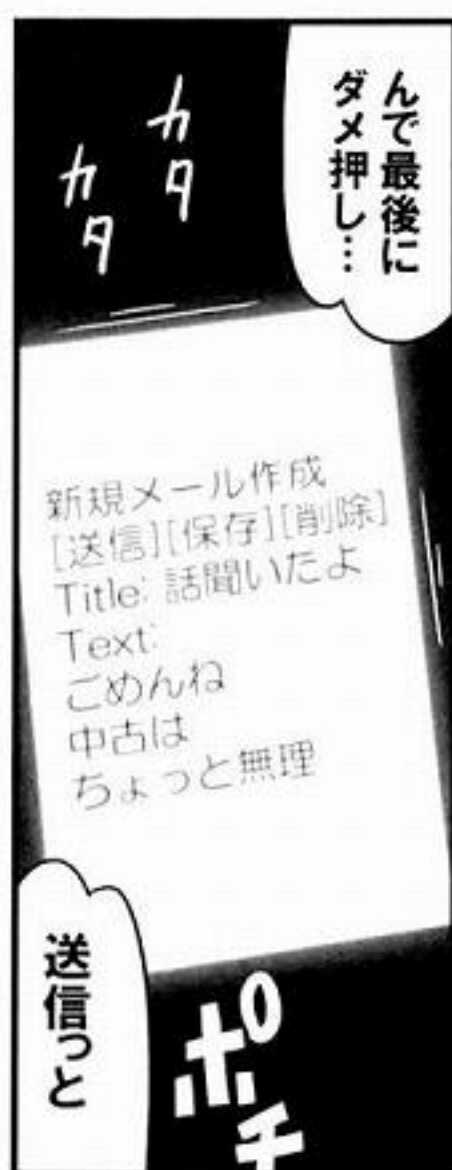 んで最後に
ダメ押し…
カタ
カタ
新規メール作成
[送信][保存][削除]
Title: 話聞いたよ
Text:
ごめんね
中古は
ちょっと無理
送信っと
ポチ